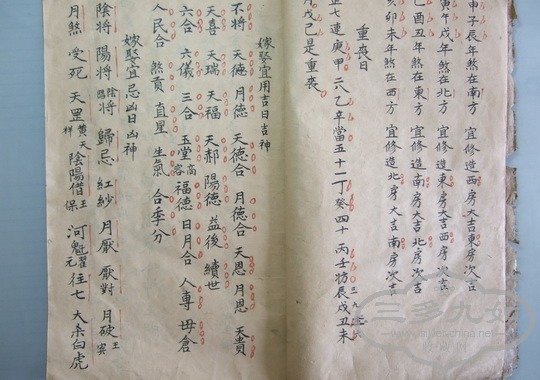 甲子辰年煞在南方 宜修造西房大吉東房次吉
寅午戌年煞在北方 宜修造東房大吉西房次吉
巳酉丑年煞在東方 宜修造南房大吉北房次吉
亥卯未年煞在西方 宜修造北房大吉南房次吉
重喪日
正七連庚甲 二八乙辛當 五十一丁癸 四十 丙壬妨 辰戌丑未
月戊己是重喪
嫁娶宜用吉日吉神
不將 天德 月德 天德合 月德合 天恩 月恩 天貴
天喜 天瑞 天福 天赦 陽德 益後 續世
六合 六儀 三合 玉堂 福德 日月合 人專 毋倉
人民合 煞貢 直星 生氣 合季分
嫁娶宜忌凶日凶神
陰將 陽將 陰陽將 歸忌 紅紗 月厭 厭對 月破
月煞 受死 天罡 陰陽借 河魁 往亡 大杀白虎
三多九如